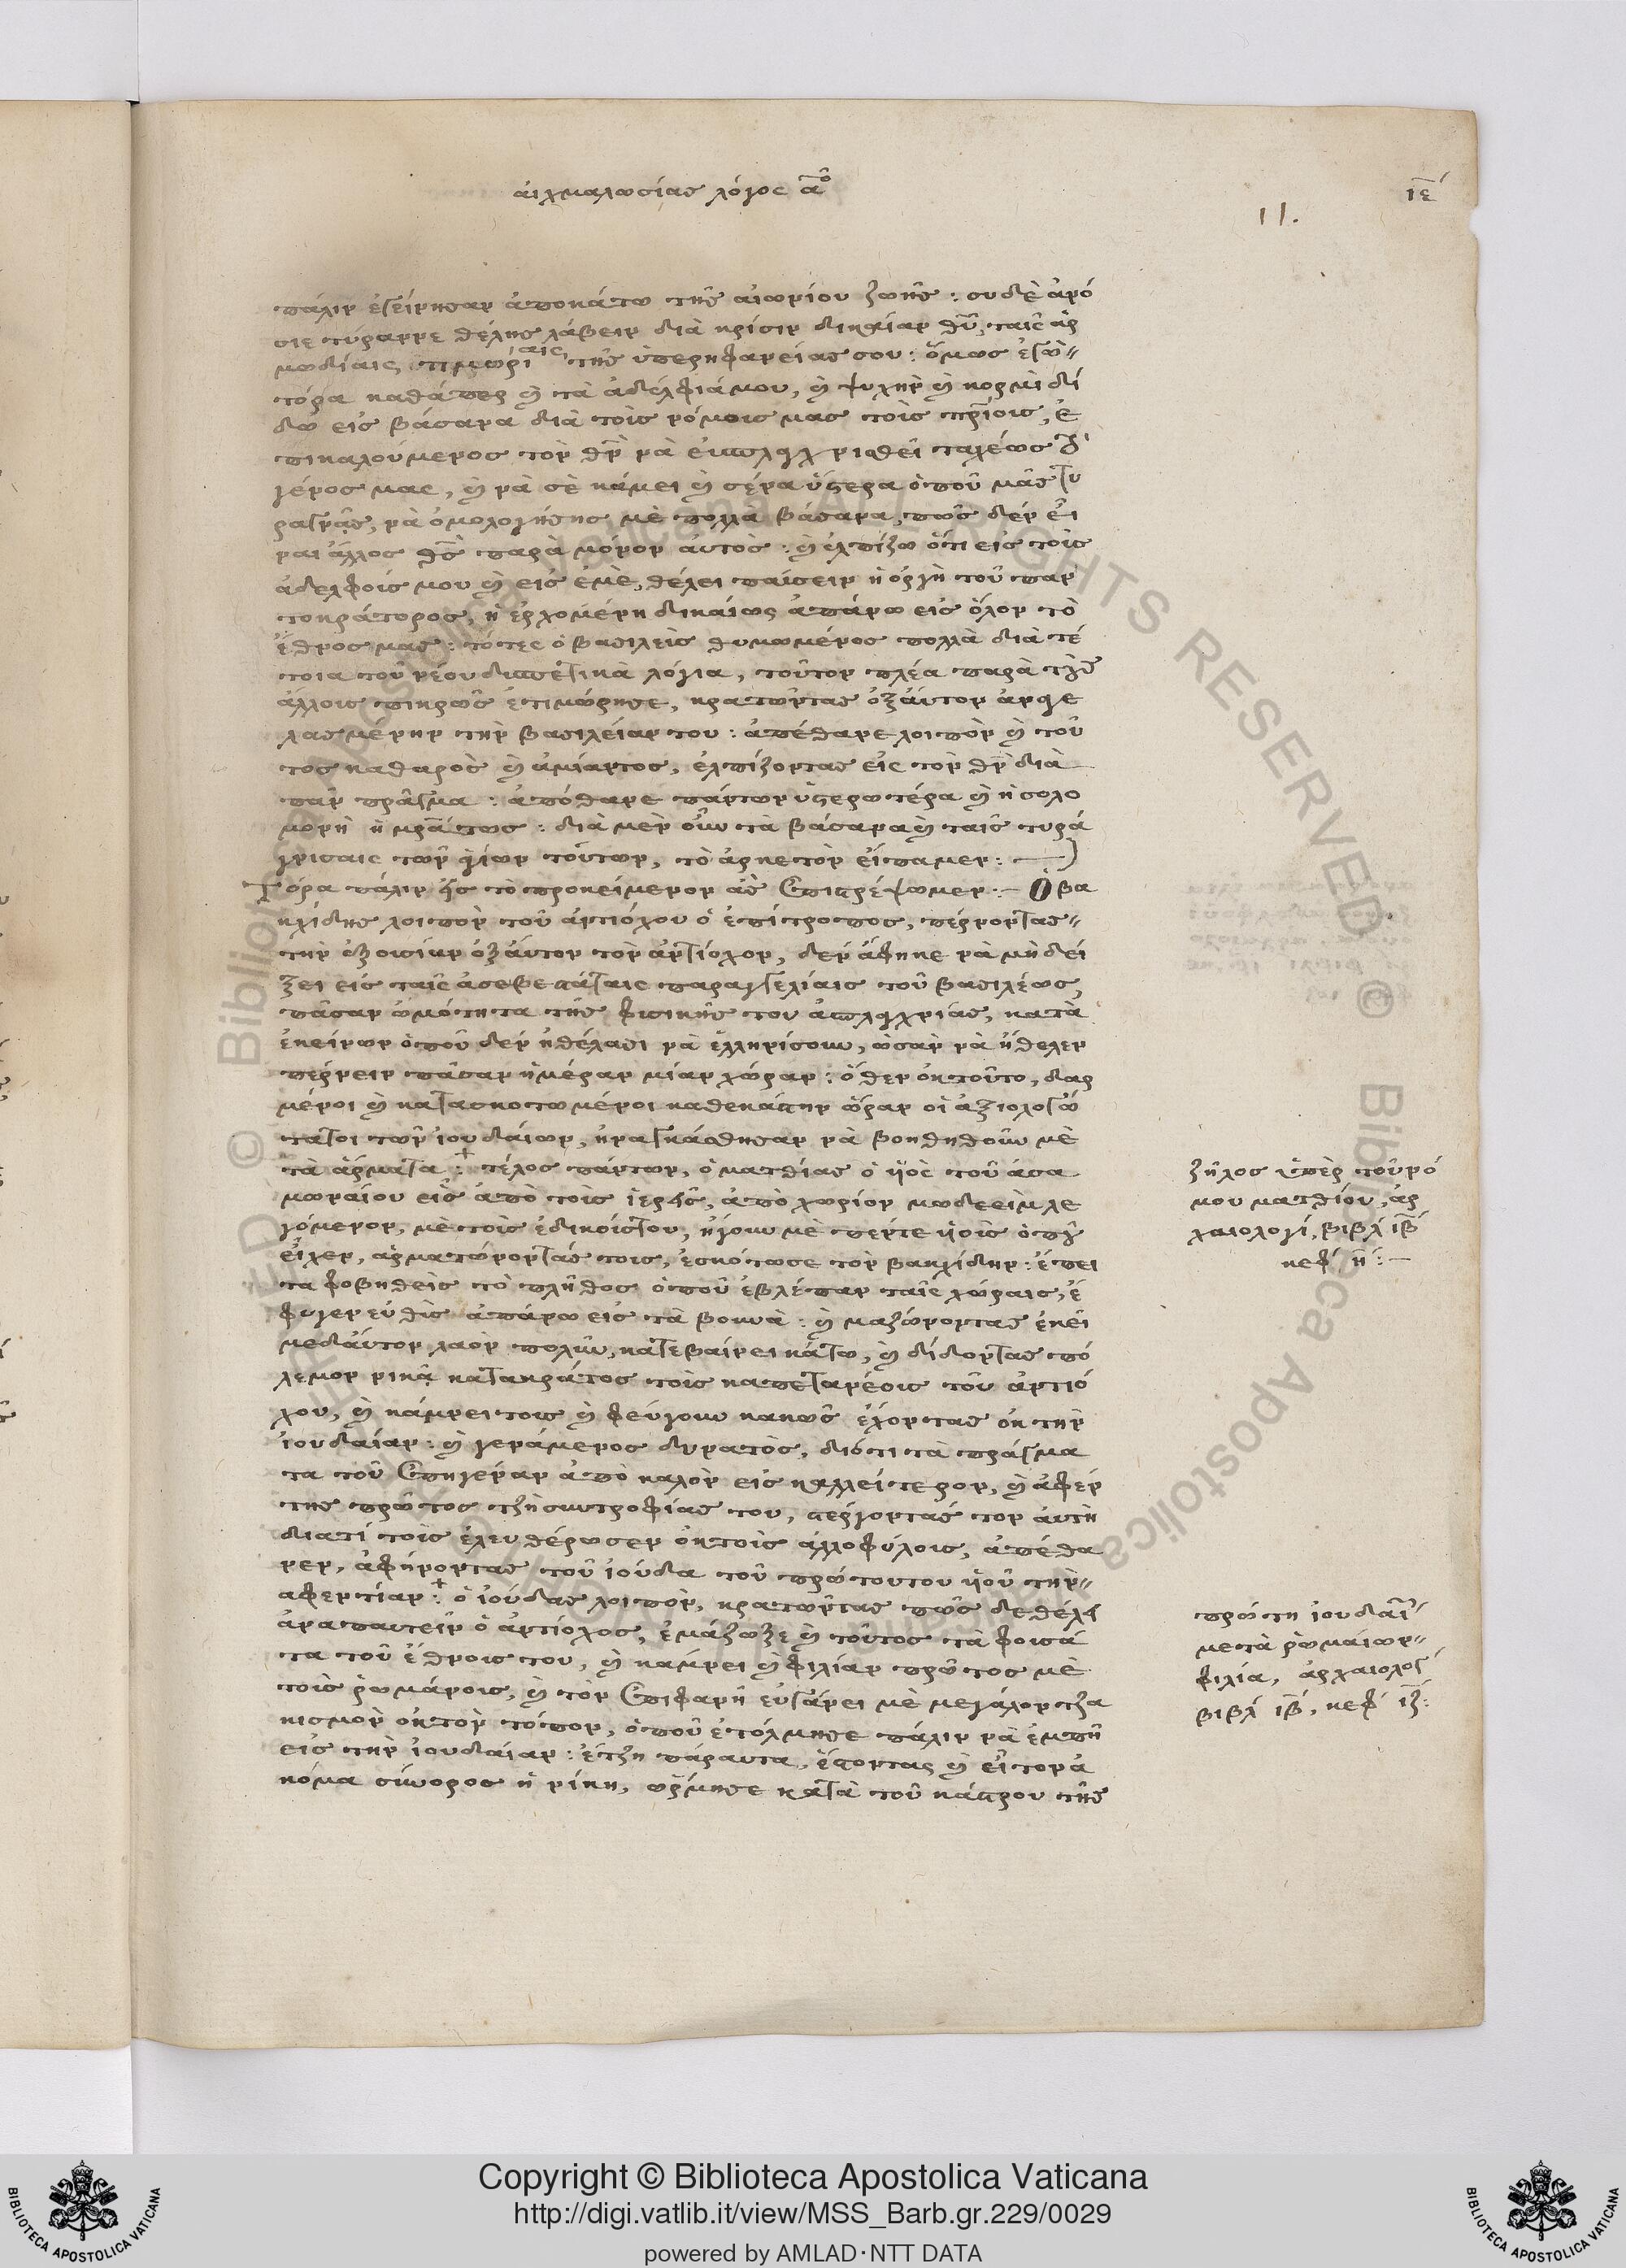 αἰχμαλωσίας λόγος α^ον
ιε
11.
πάλιν ἐγείρησαν ἀποκάτω τῆς αἰωνίου ζωῆς : σὺ δὲ ἀνό
σιε τύραννε θέλης λάβειν διὰ κρίσιν δικαίαν θῦ, ταῖς ἁρ
μωδίαις τιμωρίαις τῆς ὑπερηφανείας σου : ὅμως ἐγὼ
τόρα καθάπερ καὶ τὰ ἀδέλφιά μου, καὶ ψυχὴν καὶ κορμὶ δί
δω εἰς βάσανα διὰ τοὶς νόμοις μας τοὶς πρίοις, ἐ
πικαλούμενος τὸν θν νὰ ταχέως
γένος μας, καὶ νὰ σὲ κάμει καὶ σένα ὕστερα ὁποῦ μᾶς τυ
ραγνᾷς, νὰ ὁμολογήσης μὲ πολλὰ βάσανα, πῶς δὲν εἶ
ναι ἄλλος θς παρὰ μόνον αὐτὸς : καὶ ἐλπίζω ὅτι εἰς τοὶς
ἀδελφοίς μου καὶ εἰς ἐμὲ, θέλει παύσειν ἡ ὀργὴ τοῦ παν
τοκράτορος, ἡ ἐρχομένη δικαίως ἀπάνω εἰς ὅλον τὸ
ἔθνος μας : τότες ὁ βασιλεὺς θυμωμένος πολλὰ διὰ τέ
τοια τοῦ νέου λόγια, τοῦτον πλέα παρὰ τοὺς
ἄλλοις πικρῶς ἐτιμώρησε, κρατῶντας ὀξαύτον ἀναγε
λασμένην τὴν βασιλείαν του : ἀπέθανε λοιπὸν καὶ τοῦ
τος καθαρὸς καὶ ἀμίαντος, ἐλπίζοντας εἰς τὸν θν διὰ
πᾶν πρᾶγμα : ἀπόθανε πάντων ὑστερωτέρα καὶ ἡ σολο
μονὴ ἡ μρά τως : διὰ μὲν οὖν τὰ βάσανα καὶ ταῖς τυρά
γνισαις τῶν ἁγίων τούτων, τὸ ἀρκετὸν εἴπαμεν : —
Τόρα πάλιν εἰς τὸ προκείμενον ἂς ἐπιστρέψωμεν : — Ὁ βα
κχίδης λοιπὸν τοῦ ἀντιόχου ὁ ἐπίτροπος, πέρνοντας
τὴν ἐξουσίαν ὀξαύτον τὸν ἀντίοχον, δὲν ἄφηκε νὰ μὴ δεί
ξει εἰς ταῖς ἀσεβεστάταις παραγγελίαις τοῦ βασιλέως,
πᾶσαν ὠμότητα τῆς φυσικῆς του, κατὰ
ἐκείνων ὁποῦ δὲν ἠθέλασι νὰ ἑλληνίσουν, ὡσὰν νὰ ἤθελεν
πέρνειν πᾶσαν ἡμέραν μίαν χώραν : ὅθεν ὀκτοῦτο, δαρ
μένοι καὶ κατασκοτωμένοι καθεκάστην ὥραν οἱ ἀξιολογώ
τατοι τῶν ἰουδαίων, ἠναγκάσθησαν νὰ βοηθηθοῦν μὲ
τὰ ἅρματα : τέλος πάντων, ὁ ματθίας ὁ υἱὸς τοῦ ἀσα
μωναίου εἷς ἀπὸ τοὶς ἱερεῖς, ἀπὸ χωρίον μωδεεὶμ λε
γόμενον, μὲ τοὶς ἐδικοίς του, ἤγουν μὲ πέντε υἱοὶς ὁποῦ
εἶχεν, ἁρματώνοντάς τοις, ἐσκότωσε τὸν βακχίδην : ἔπει
τα φοβηθεὶς τὸ πλῆθος ὁποῦ ἐβλέπαν ταῖς χώραις, ἔ
φυγεν εὐθὺς ἀπάνω εἰς τὰ βουνὰ : καὶ μαζώνοντας ἐκεῖ
μεδαύτον λαὸν πολὺν, κατεβαίνει κάτω, καὶ δίδοντας πό
λεμον νικᾷ κατακράτος τοὶς καπετανέοις τοῦ ἀντιό
χου, καὶ κάμνει τοις καὶ φεύγουν κακῶς ἔχοντας ὀκ τὴν
ἰουδαίαν : καὶ γενάμενος δυνατὸς, διότι τὰ πράγμα
τα τοῦ ἐπηγέναν ἀπὸ καλὸν εἰς καλλείτερον, καὶ ἀφέν
της πρῶτος τζὴ συντροφίας του, στέργοντάς τον αὐτὴ
διατί τοὶς ἐλευθέρωσεν ὀκ τοὶς ἀλλοφύλοις, ἀπέθα
νεν, ἀφήνοντας τοῦ ἰούδα τοῦ πρώτου του υἱοῦ τὴν
αφεντίαν : ὁ ἰούδας λοιπὸν, κρατῶντας πῶς δε θέλει
ἀναπαυτεῖν ὁ ἀντίοχος, ἐμάζωξε καὶ τοῦτος τὰ φουσά
τα τοῦ ἔθνοις του, καὶ κάμνει καὶ φιλίαν πρῶτος μὲ
τοὶς ῥωμάνοις, καὶ τὸν ἐπιφανῆ εὐγάνει μὲ μεγάλον τζα
κισμὸν ὀκ τὸν τόπον, ὁποῦ ἐτόλμησε πάλιν νὰ ἐμπῆ
εἰς τὴν ἰουδαίαν : ἔτζη πάραυτα, ἔστοντας καὶ εἶτον ἀ
κόμα σύνορος ἡ νίκη, ὥρμησε κατὰ τοῦ κάστρου τῆς
ζῆλος ὑπὲρ τοῦ νό
μου ματθίου, ἀρ
χαιολογί, βιβλ ιβ
κεφ η : —
πρώτη ἰουδαί
μετὰ ῥωμαίων
φιλία, ἀρχαιολογ
βιβλ ιβ, κεφ ιζ :
Copyright © Biblioteca Apostolica Vaticana
http://digi.vatlib.it/view/MSS_Barb.gr.229/0029
powered by AMLAD·NTT DATA
BIBLIOTECA APOSTOLICA VATICANA
BIBLIOTECA APOSTOLICA VATICANA